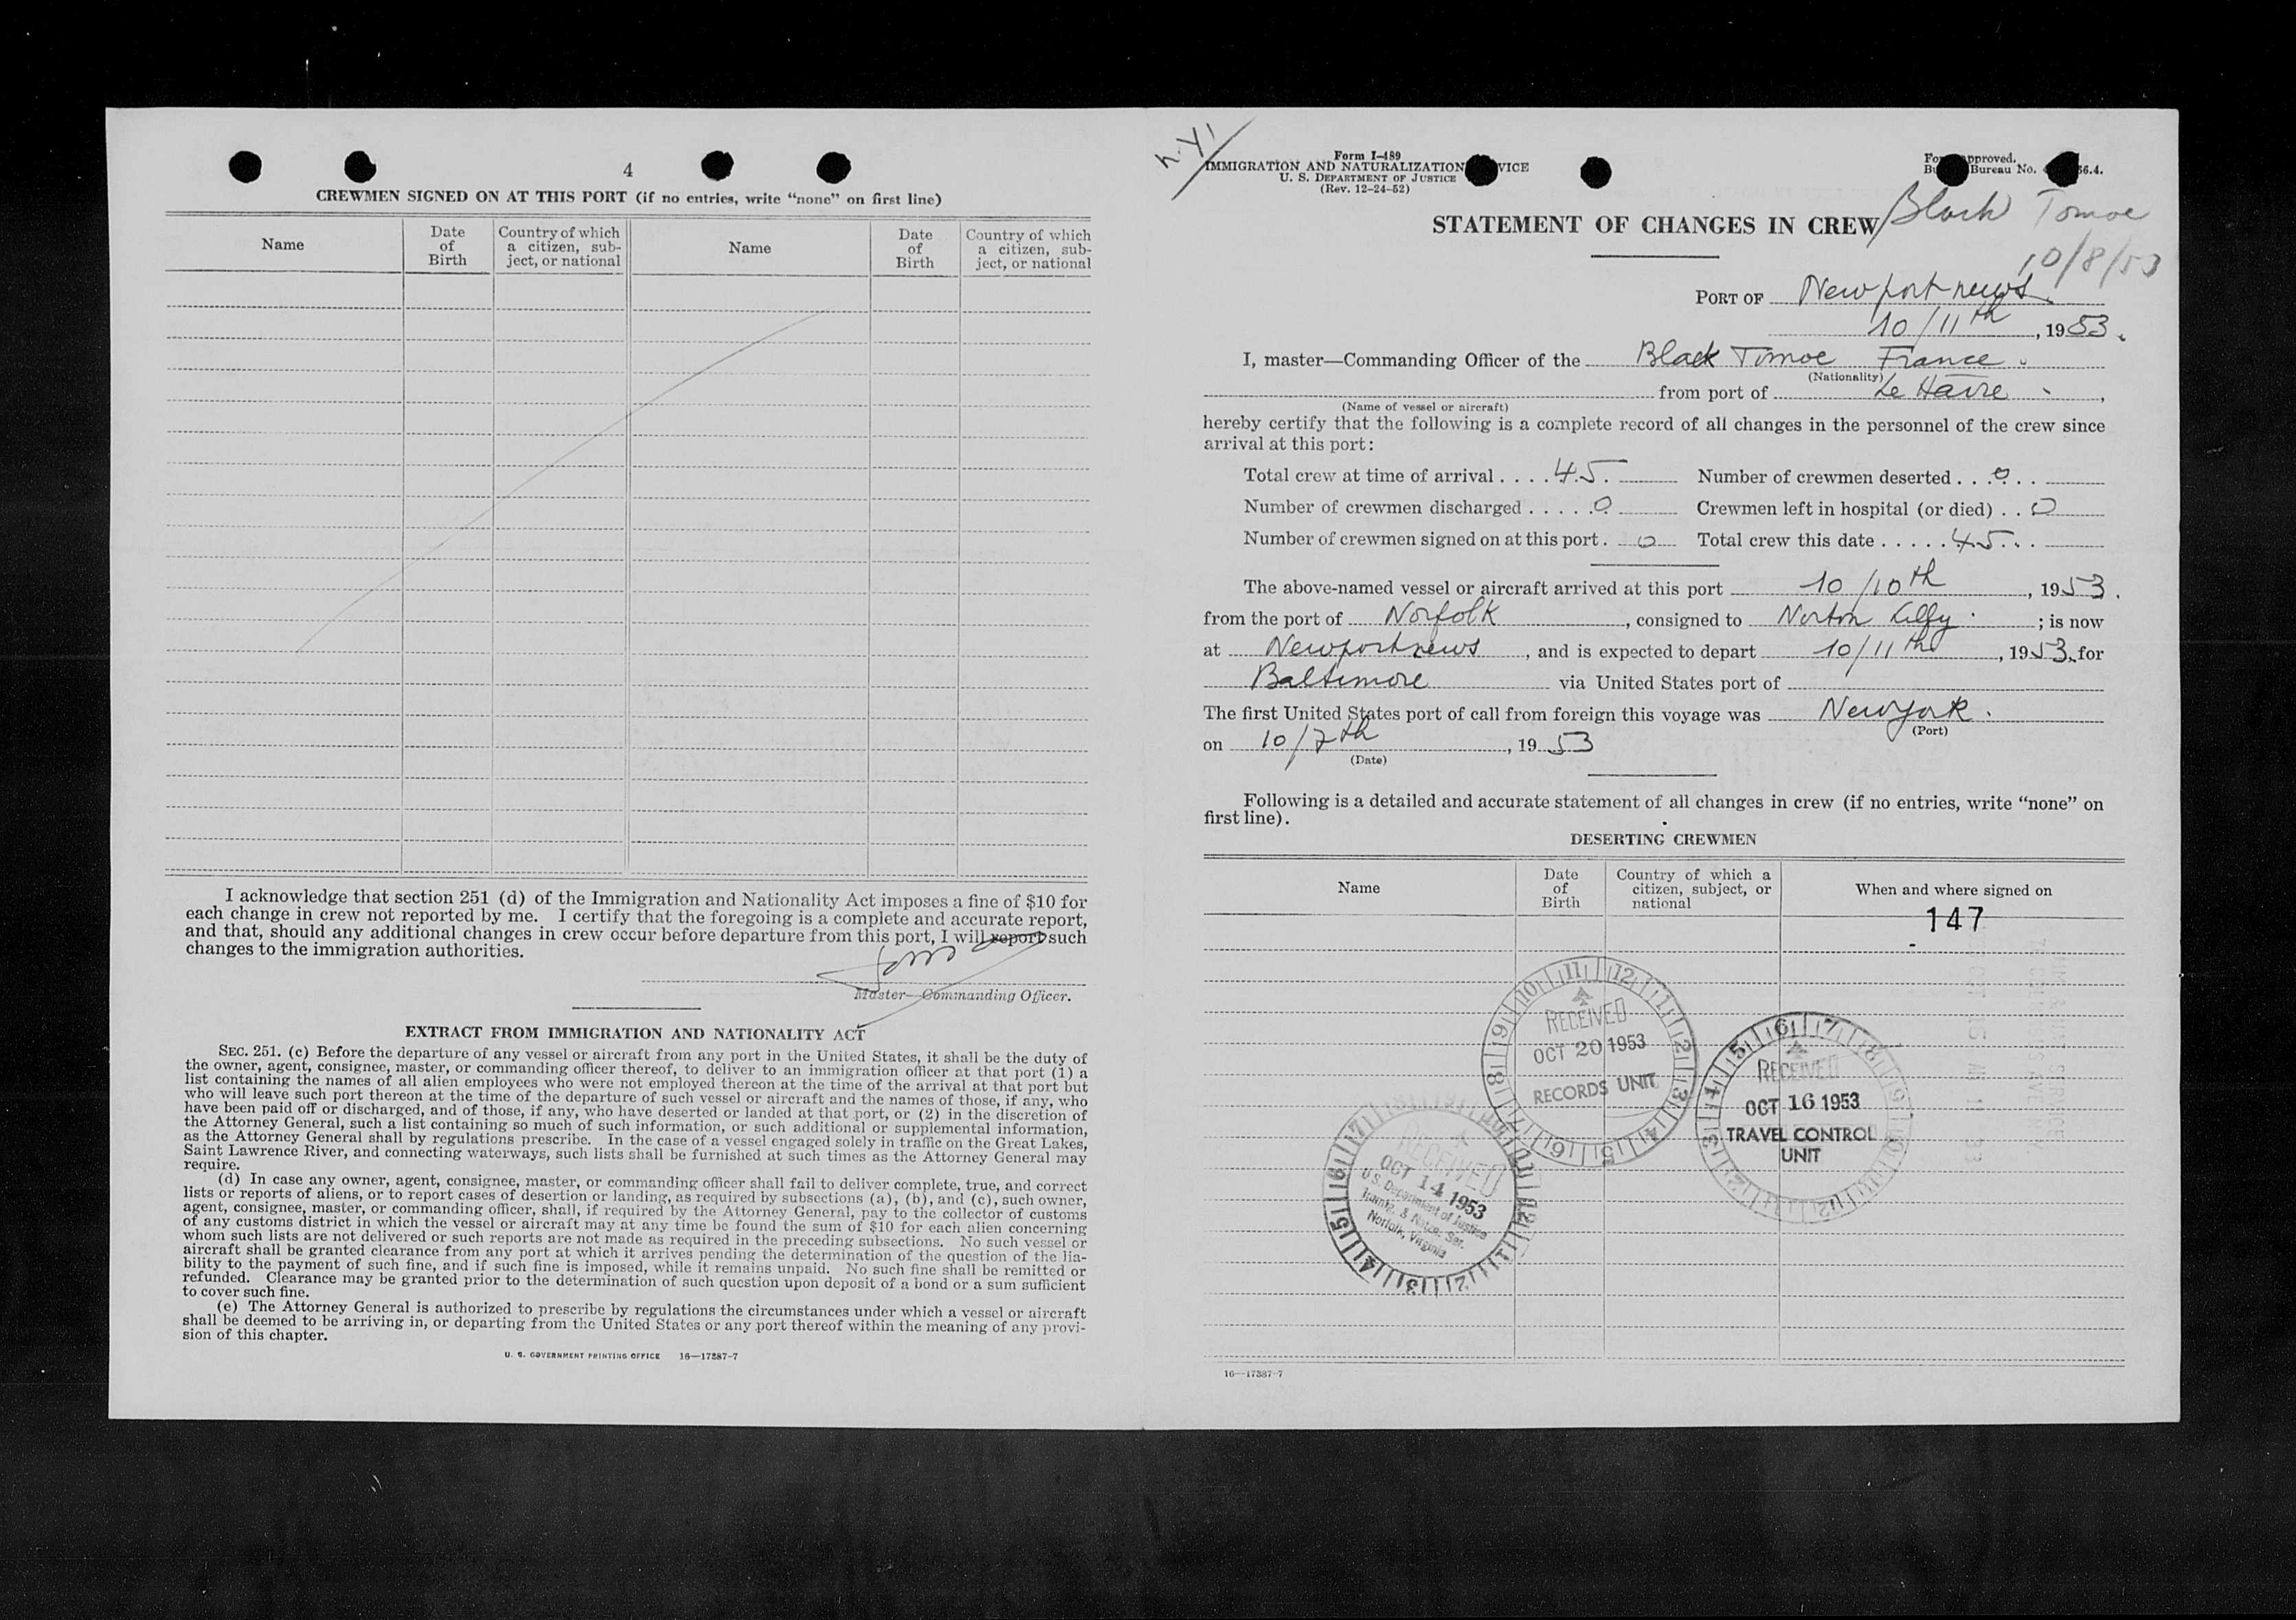 4
CREWMEN SIGNED ON AT THIS PORT (if no entries, write “none” on first line)
Name
Date of Birth
Country of which a citizen, sub-ject, or national
Name
Date of Birth
Country of which a citizen, sub-ject, or national
I acknowledge that section 251 (d) of the Immigration and Nationality Act imposes a fine of $10 for
each change in crew not reported by me. I certify that the foregoing is a complete and accurate report,
and that, should any additional changes in crew occur before departure from this port, I will report such
changes to the immigration authorities.
Master—Commanding Officer.
EXTRACT FROM IMMIGRATION AND NATIONALITY ACT
SEC. 251. (c) Before the departure of any vessel or aircraft from any port in the United States, it shall be the duty of
the owner, agent, consignee, master, or commanding officer thereof, to deliver to an immigration officer at that port (1) a
list containing the names of all alien employees who were not employed thereon at the time of the arrival at that port but
who will leave such port thereon at the time of the departure of such vessel or aircraft and the names of those, if any, who
have been paid off or discharged, and of those, if any, who have deserted or landed at that port, or (2) in the discretion of
the Attorney General, such a list containing so much of such information, or such additional or supplemental information,
as the Attorney General shall by regulations prescribe. In the case of a vessel engaged solely in traffic on the Great Lakes,
Saint Lawrence River, and connecting waterways, such lists shall be furnished at such times as the Attorney General may
require.
(d) In case any owner, agent, consignee, master, or commanding officer shall fail to deliver complete, true, and correct
lists or reports of aliens, or to report cases of desertion or landing, as required by subsections (a), (b), and (c), such owner,
agent, consignee, master, or commanding officer, shall, if required by the Attorney General, pay to the collector of customs
of any customs district in which the vessel or aircraft may at any time be found the sum of $10 for each alien concerning
whom such lists are not delivered or such reports are not made as required in the preceding subsections. No such vessel or
aircraft shall be granted clearance from any port at which it arrives pending the determination of the question of the lia-
bility to the payment of such fine, and if such fine is imposed, while it remains unpaid. No such fine shall be remitted or
refunded. Clearance may be granted prior to the determination of such question upon deposit of a bond or a sum sufficient
to cover such fine.
(e) The Attorney General is authorized to prescribe by regulations the circumstances under which a vessel or aircraft
shall be deemed to be arriving in, or departing from the United States or any port thereof within the meaning of any provi-
sion of this chapter.
U. S. GOVERNMENT PRINTING OFFICE 16—17387-7
Form I-489
IMMIGRATION AND NATURALIZATION VICE
U. S. DEPARTMENT OF JUSTICE
(Rev. 12-24-52)
pproved.
Bureau No. 36.4.
STATEMENT OF CHANGES IN CREW
Black Tomoe
10/8/53
PORT OF Newport news.
10/11th, 1953.
I, master—Commanding Officer of the Black Tomoe France.
(Nationality)
from port of Le Havre.,
(Name of vessel or aircraft)
hereby certify that the following is a complete record of all changes in the personnel of the crew since
arrival at this port:
Total crew at time of arrival .... 45. Number of crewmen deserted ... 0
Number of crewmen discharged ..... 0 Crewmen left in hospital (or died) .. 0
Number of crewmen signed on at this port. 0 Total crew this date ..... 45..
The above-named vessel or aircraft arrived at this port 10/10th, 1953.
from the port of Norfolk, consigned to Norton Lilly.; is now
at Newport news, and is expected to depart 10/11th, 1953, for
Baltimore via United States port of
The first United States port of call from foreign this voyage was New york.
(Port)
on 10/7th, 1953
(Date)
Following is a detailed and accurate statement of all changes in crew (if no entries, write “none” on
first line).
DESERTING CREWMEN
Name
Date of Birth
Country of which a citizen, subject, or national
When and where signed on
147
RECEIVED
OCT 20 1953
RECORDS UNIT
RECEIVED
OCT 16 1953
TRAVEL CONTROL
UNIT
RECEIVED
OCT 14 1953
U.S. Department of Justice
Immig. & Natz. Ser.
Norfolk, Virginia
16—17387-7